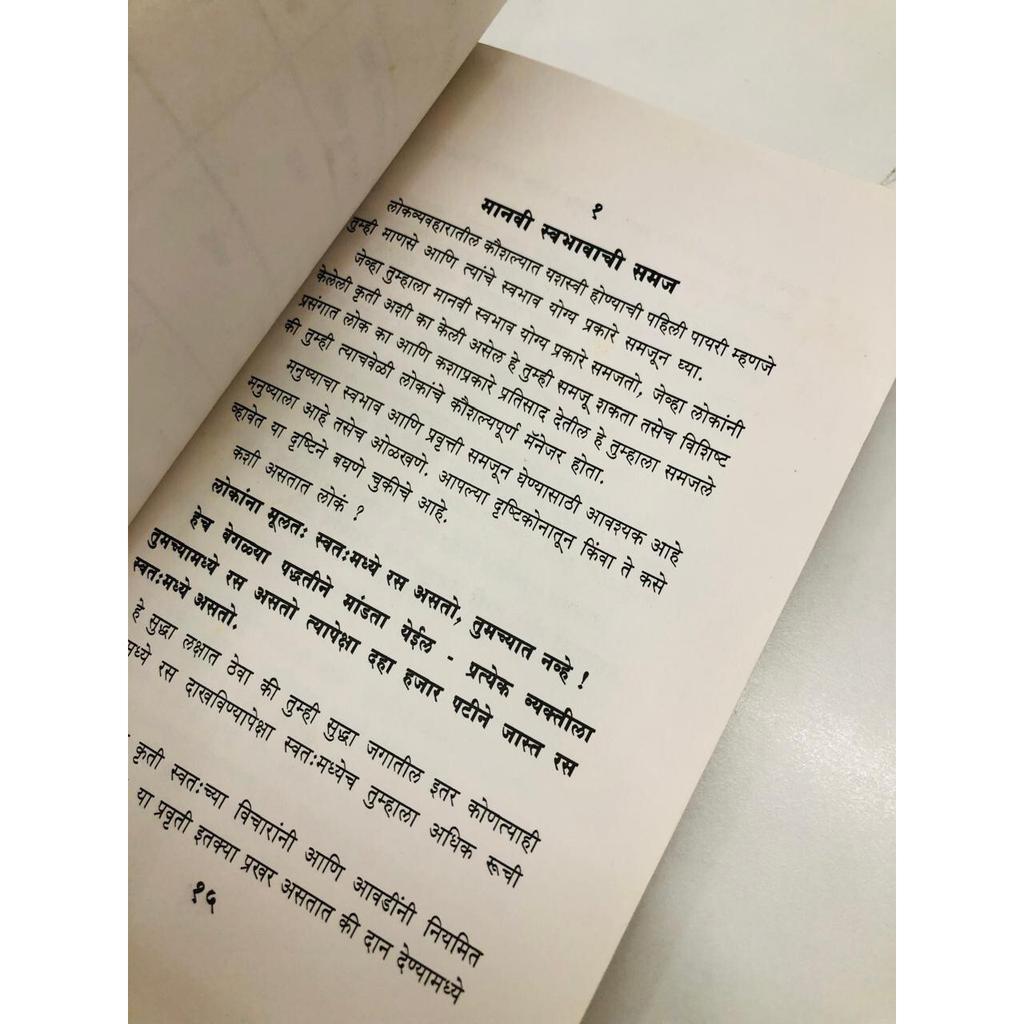 १
मानवी स्वभावाची समज
लोकव्यवहारातील कौशल्यात यशस्वी होण्याची पहिली पायरी म्हणजे
तुम्ही माणसे आणि त्यांचे स्वभाव योग्य प्रकारे समजून घ्या.
जेव्हा तुम्हाला मानवी स्वभाव योग्य प्रकारे समजतो, जेव्हा लोकांनी
केलेली कृती अशी का केली असेल हे तुम्ही समजू शकता तसेच विशिष्ट
प्रसंगात लोक का आणि कशाप्रकारे प्रतिसाद देतील हे तुम्हाला समजले
की तुम्ही त्याचवेळी लोकांचे कौशल्यपूर्ण मॅनेजर होता.
मनुष्याचा स्वभाव आणि प्रवृत्ती समजून घेण्यासाठी आवश्यक आहे
मनुष्याला आहे तसेच ओळखणे. आपल्या दृष्टिकोनातून किंवा ते कसे
व्हावेत या दृष्टिने बघणे चुकीचे आहे.
कशी असतात लोकं ?
लोकांना मूलतः स्वतःमध्ये रस असतो, तुमच्यात नव्हे !
हेच वेगळ्या पद्धतीने मांडता येईल - प्रत्येक व्यक्तीला
तुमच्यामध्ये रस असतो त्यापेक्षा दहा हजार पटीने जास्त रस
स्वतःमध्ये असतो.
हे सुद्धा लक्षात ठेवा की तुम्ही सुद्धा जगातील इतर कोणत्याही
रस दाखविण्यापेक्षा स्वतःमध्येच तुम्हाला अधिक रूची
कृती स्वतःच्या विचारांनी आणि आवडींनी नियमित
या प्रवृती इतक्या प्रखर असतात की दान देण्यामध्ये
१५